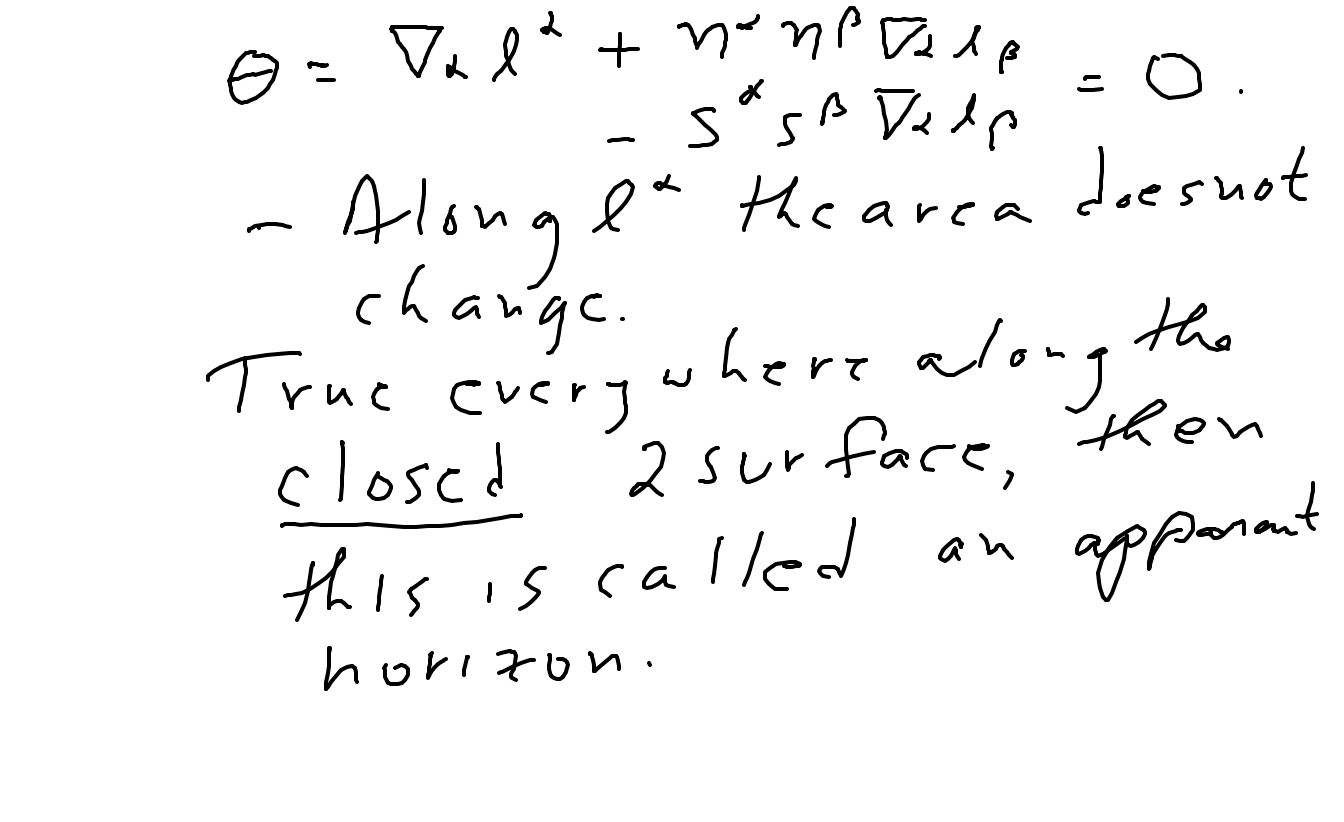 Θ = ∇_α l^α + n^α n^β ∇_α l_β
- s^α s^β ∇_α l_β = 0.
- Along l^α the area does not
change.
True everywhere along the
closed 2 surface, then
this is called an apparent
horizon.